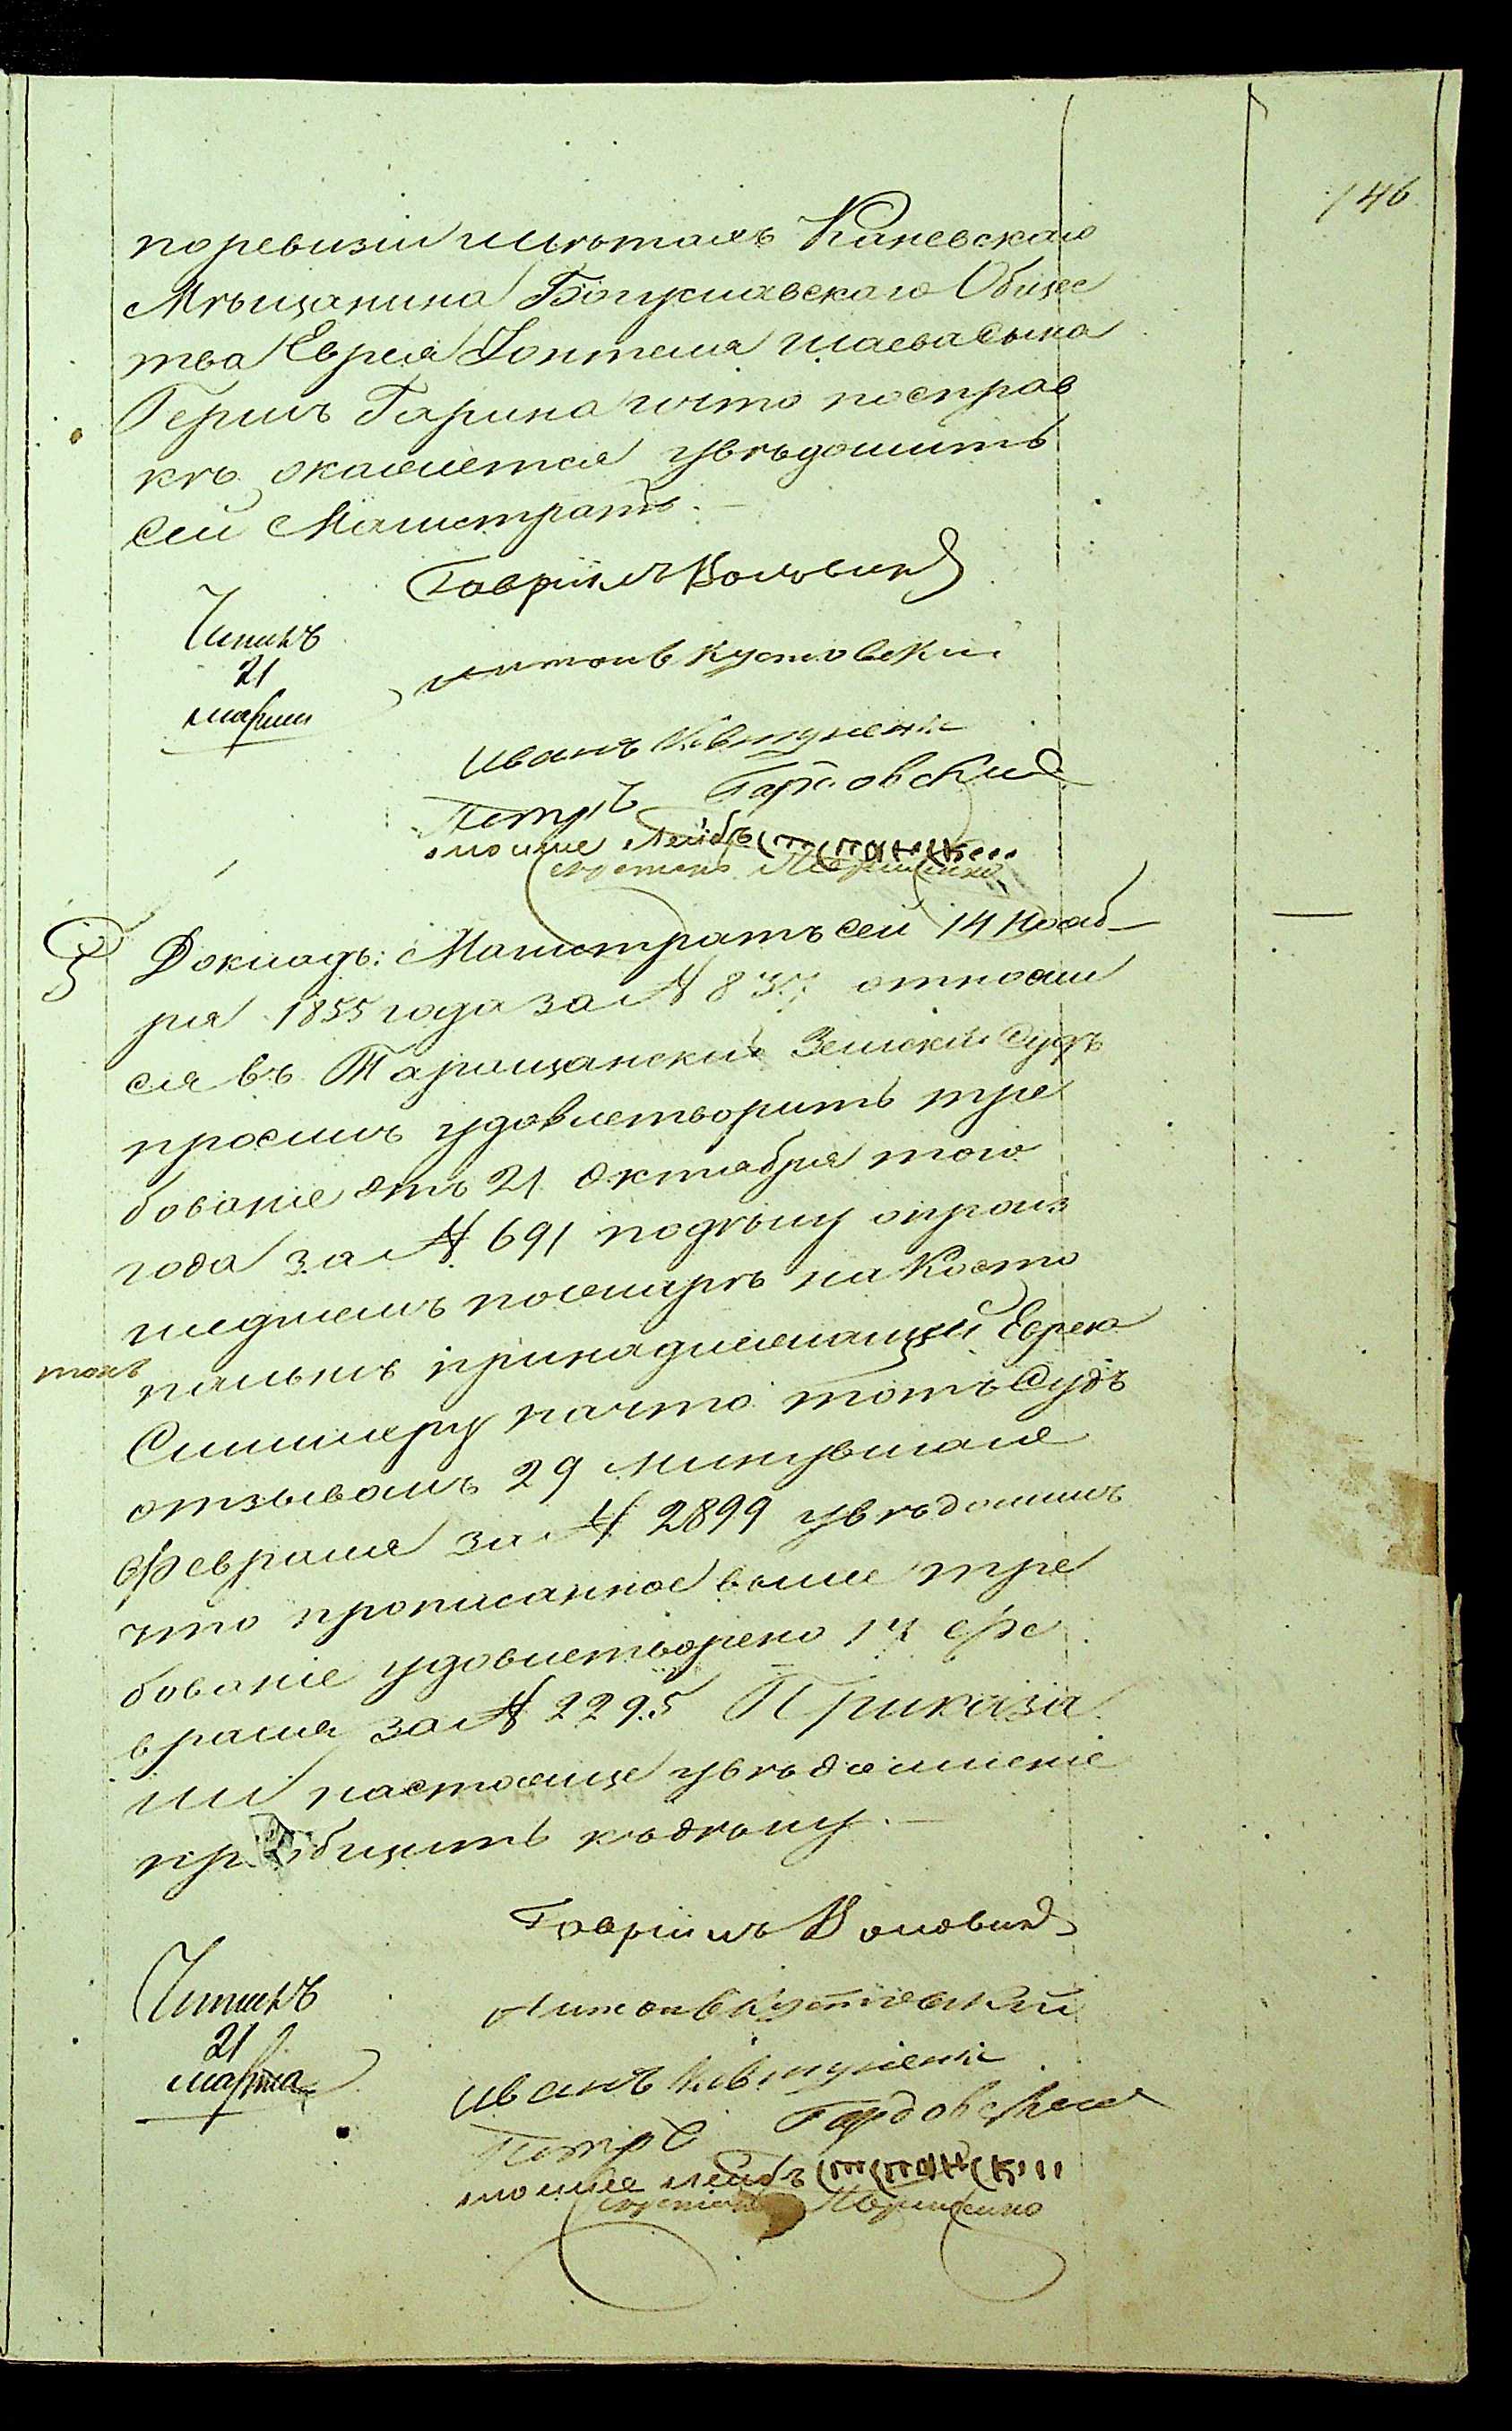 146
по ревизіи ли лѣтамъ Каневскаго
Мѣщанина Богуславскаго Общес
тва Еврея Зоптеля Шаева сына
Герш Гарина что по справ
кѣ окажется увѣдомить
сей Магистратъ. —
Гавріилъ Воловикъ
Читалъ
21
марта
Антонъ Кустовскій
Иванъ Ковтуненк
Петръ Гардовскій
мошие Лейбъ
Секретарь
Докладъ: Магистратъ сей 14 Нояб-
ря 1855 года за № 837 относил
ся въ Таращанскій Земскій Судъ
просилъ удовлетворить тре
бованіе отъ 21 Октября того
года за № 691 по дѣлу о произ
шедшемъ пожарѣ на косто
тонъ пальнѣ принадлежащей Еврею
Симмеру на что тотъ Судъ
отзывомъ 29 минувшаго
Февраля за № 2899 увѣдомилъ
что прописанное выше тре
бованіе удовлетворено 14 Фе
враля за № 2295 Приказа
ли настояще увѣдомленіе
пріобщить къ дѣлу. —
Гавріилъ Воловикъ
Читалъ
21
марта
Антонъ Кустовскій
Иванъ Ковтуненк
Петръ Гардовскій
мошие лейбъ
Секретарь